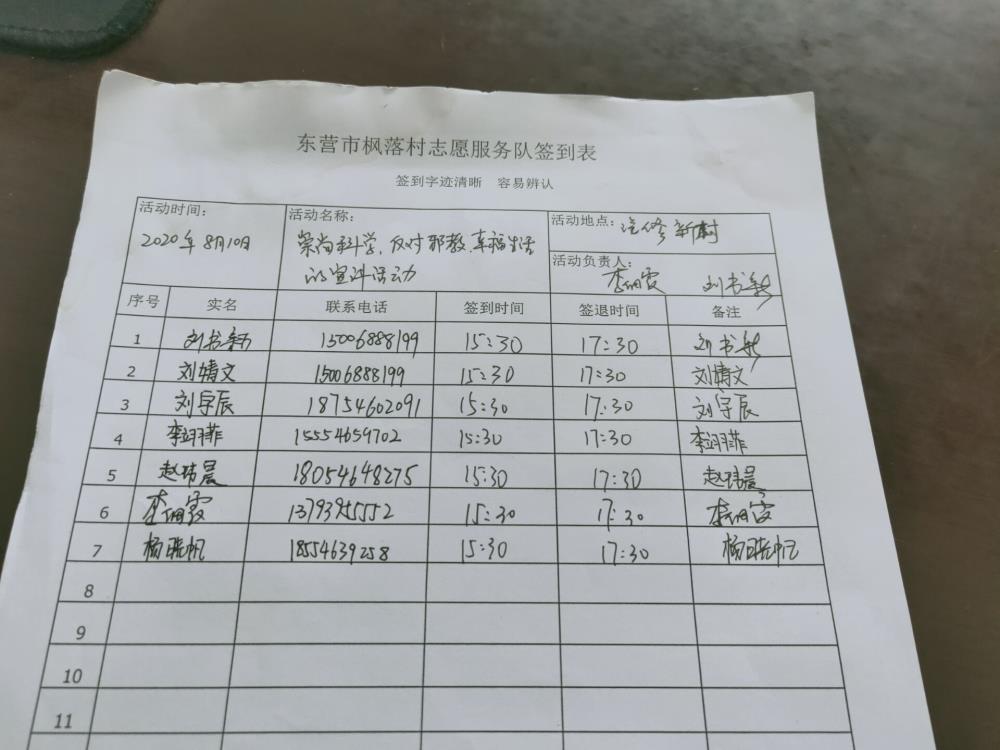 东营市枫落村志愿服务队签到表
签到字迹清晰 容易辨认
活动时间: 活动名称: 活动地点: 汽修新村
2020年8月10日 崇尚科学、反对邪教、幸福生活
的宣讲活动
活动负责人: 李佃霞 刘书新
序号 实名 联系电话 签到时间 签退时间 备注
1 刘书新 15006888199 15:30 17:30 刘书新
2 刘婧文 15006888199 15:30 17:30 刘婧文
3 刘宇辰 18754602091 15:30 17:30 刘宇辰
4 李翊菲 15554659702 15:30 17:30 李翊菲
5 赵玮晨 18054648275 15:30 17:30 赵玮晨
6 李佃霞 13793955552 15:30 17:30 李佃霞
7 杨晓帆 18554639258 15:30 17:30 杨晓帆
8
9
10
11